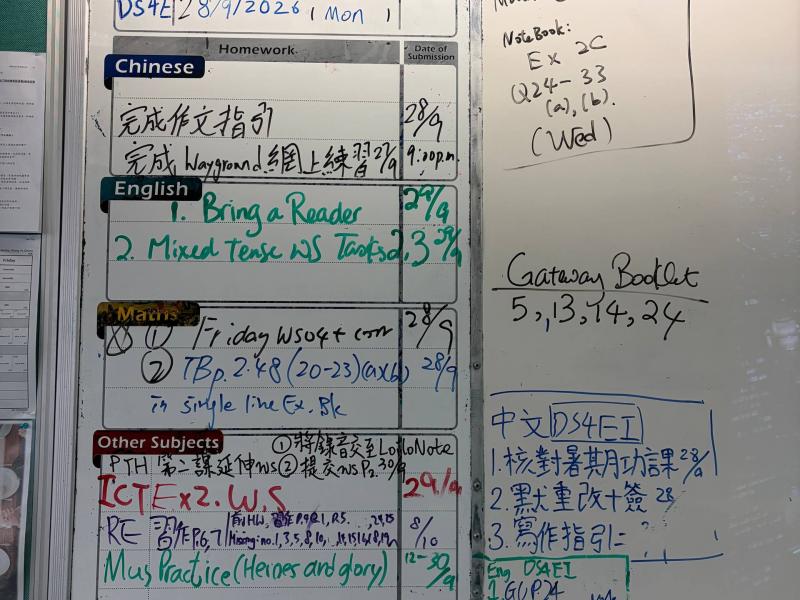 DS4E 28/9/2026 (Mon)
Homework
Date of Submission
Chinese
完成作文指引 28/9
完成 Wayground 網上練習 27/9 9:00p.m.
English
1. Bring a Reader 29/9
2. Mixed Tense WS Task 2,3 29/9
Maths
① Friday WS04 + corr 28/9
② TB p. 2.48 (20-23)(a)(b) 28/9
in single line Ex. Bk
Other Subjects
① 將錄音交至 LoiloNote
PTH 第二課延伸WS ② 提交WS P2. 30/9
ICT Ex2. W.S 29/9
RE 習作P.6,7 8/10
Missing no. 1, 3, 5, 8, 10,
Mus Practice (Heroes and glory) 12-30/9
NoteBook:
Ex 2C
Q24-33
(a), (b).
(Wed)
Gateway Booklet
5, 13, 14, 24
中文 DS4EI
1. 核對暑期功課 28/9
2. 默重改+簽 28
3. 寫作指引
Eng DS4EI
1. G(1) P.24